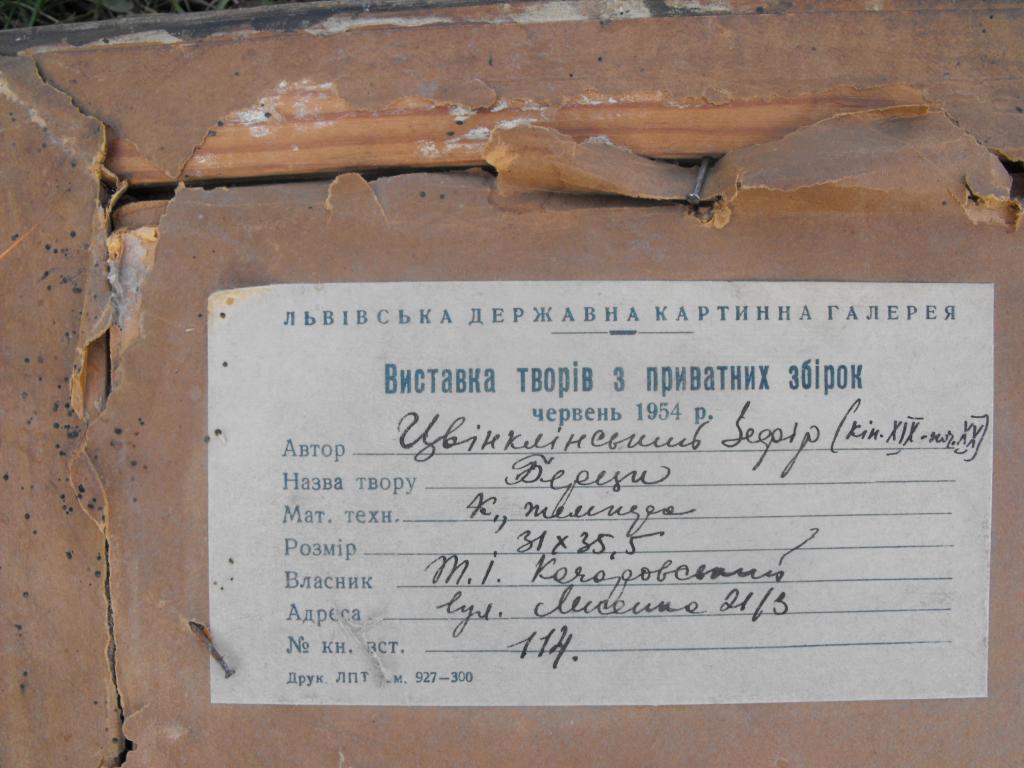 ЛЬВІВСЬКА ДЕРЖАВНА КАРТИННА ГАЛЕРЕЯ
Виставка творів з приватних збірок
червень 1954 р.
Автор Цвінклінський Зефір (кін. XIX - поч. XX)
Назва твору Берези
Мат. техн. К., темпера
Розмір 31 х 35,5
Власник Т. І. Качоровський
Адреса вул. Лисенка 21/3
№ кн. вст. 114.
Друк. ЛПТ м. 927—300